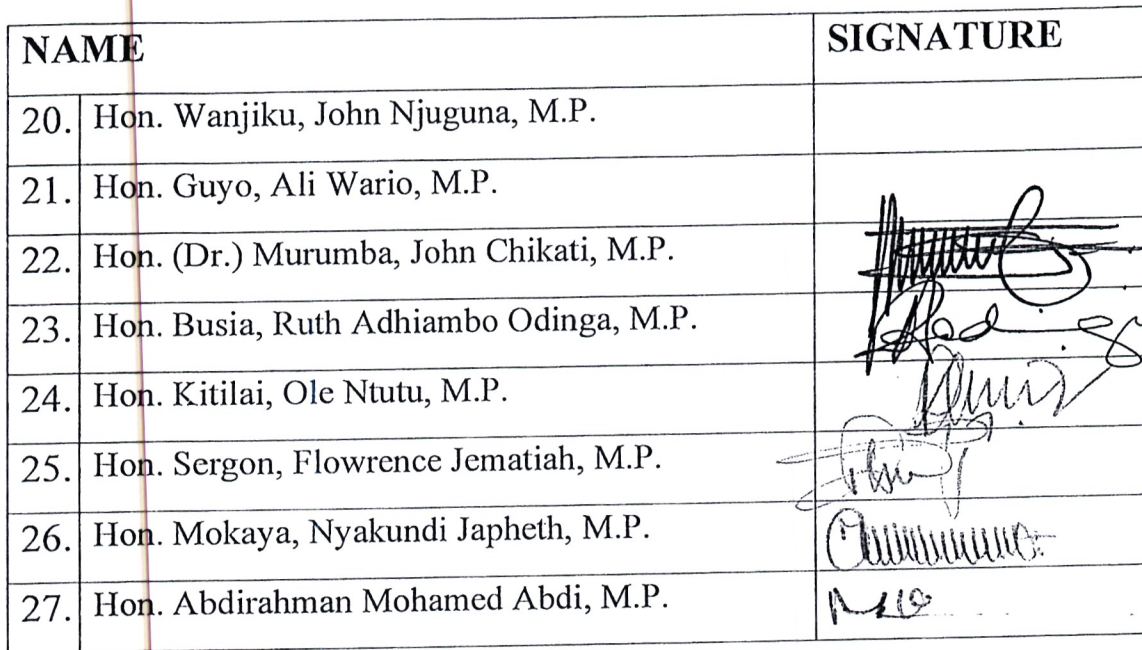 NAME SIGNATURE
20. Hon. Wanjiku, John Njuguna, M.P.
21. Hon. Guyo, Ali Wario, M.P.
22. Hon. (Dr.) Murumba, John Chikati, M.P.
23. Hon. Busia, Ruth Adhiambo Odinga, M.P.
24. Hon. Kitilai, Ole Ntutu, M.P.
25. Hon. Sergon, Flowrence Jematiah, M.P.
26. Hon. Mokaya, Nyakundi Japheth, M.P.
27. Hon. Abdirahman Mohamed Abdi, M.P.